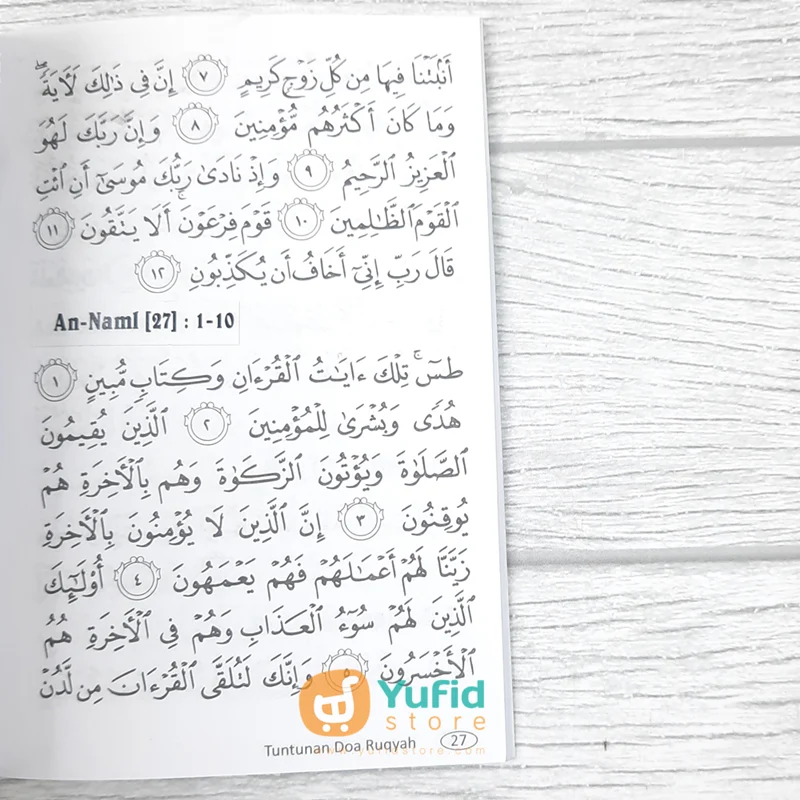 أَنۢبَتْنَا فِيهَا مِن كُلِّ زَوْجٍ كَرِيمٍ ٧ إِنَّ فِى ذَٰلِكَ لَءَايَةً ۖ
وَمَا كَانَ أَكْثَرُهُم مُّؤْمِنِينَ ٨ وَإِنَّ رَبَّكَ لَهُوَ
ٱلْعَزِيزُ ٱلرَّحِيمُ ٩ وَإِذْ نَادَىٰ رَبُّكَ مُوسَىٰٓ أَنِ ٱئْتِ
ٱلْقَوْمَ ٱلظَّـٰلِمِينَ ١٠ قَوْمَ فِرْعَوْنَ ۚ أَلَا يَتَّقُونَ ١١
قَالَ رَبِّ إِنِّىٓ أَخَافُ أَن يُكَذِّبُونِ ١٢
An-Naml [27] : 1-10
طسٓ ۚ تِلْكَ ءَايَـٰتُ ٱلْقُرْءَانِ وَكِتَابٍ مُّبِينٍ ١
هُدًى وَبُشْرَىٰ لِلْمُؤْمِنِينَ ٢ ٱلَّذِينَ يُقِيمُونَ
ٱلصَّلَوٰةَ وَيُؤْتُونَ ٱلزَّكَوٰةَ وَهُم بِٱلْـَٔاخِرَةِ هُمْ
يُوقِنُونَ ٣ إِنَّ ٱلَّذِينَ لَا يُؤْمِنُونَ بِٱلْـَٔاخِرَةِ
زَيَّنَّا لَهُمْ أَعْمَـٰلَهُمْ فَهُمْ يَعْمَهُونَ ٤ أُو۟لَـٰٓئِكَ
ٱلَّذِينَ لَهُمْ سُوٓءُ ٱلْعَذَابِ وَهُمْ فِى ٱلْـَٔاخِرَةِ هُمُ
ٱلْأَخْسَرُونَ ٥ وَإِنَّكَ لَتُلَقَّى ٱلْقُرْءَانَ مِن لَّدُنْ
Yufid
store
www.yufidstore.com
Tuntunan Doa Ruqyah 27